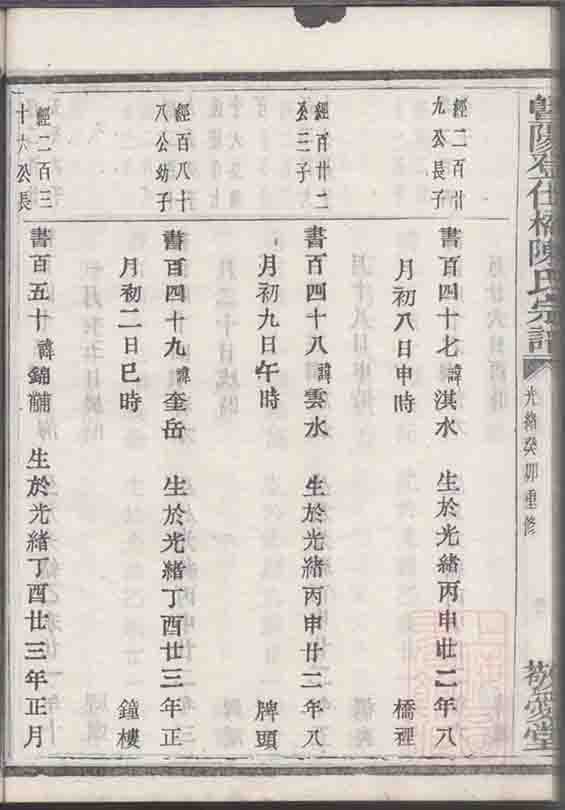 暨陽登仕橋陳氏宗譜
光緒癸卯重修
敬愛堂
經二百廿
九公長子
書百四十七諱淇水 生於光緒丙申廿二年八
月初八日申時 橋裡
經百廿二
公三子
書百四十八諱雲水 生於光緒丙申廿二年八
月初九日午時 牌頭
經百八十
八公幼子
書百四十九諱奎岳 生於光緒丁酉廿三年正
月初二日巳時 鐘樓
經二百三
十六公長
書百五十諱錦黼 生於光緒丁酉廿三年正月